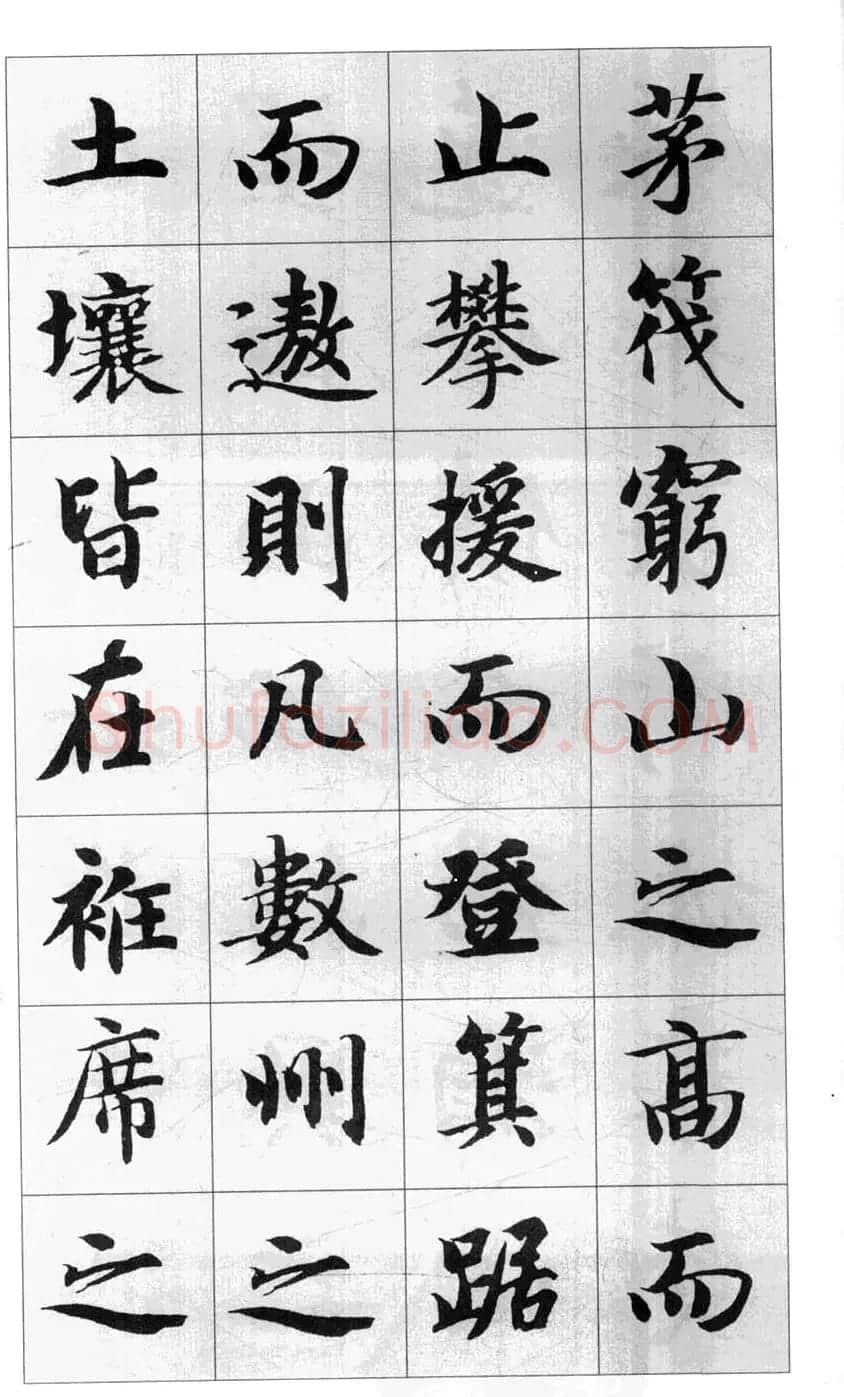 茅筏窮山之高而
止攀援而登箕踞
而遨則凡數州之
土壤皆在袵席之
Shufaziliao.COM